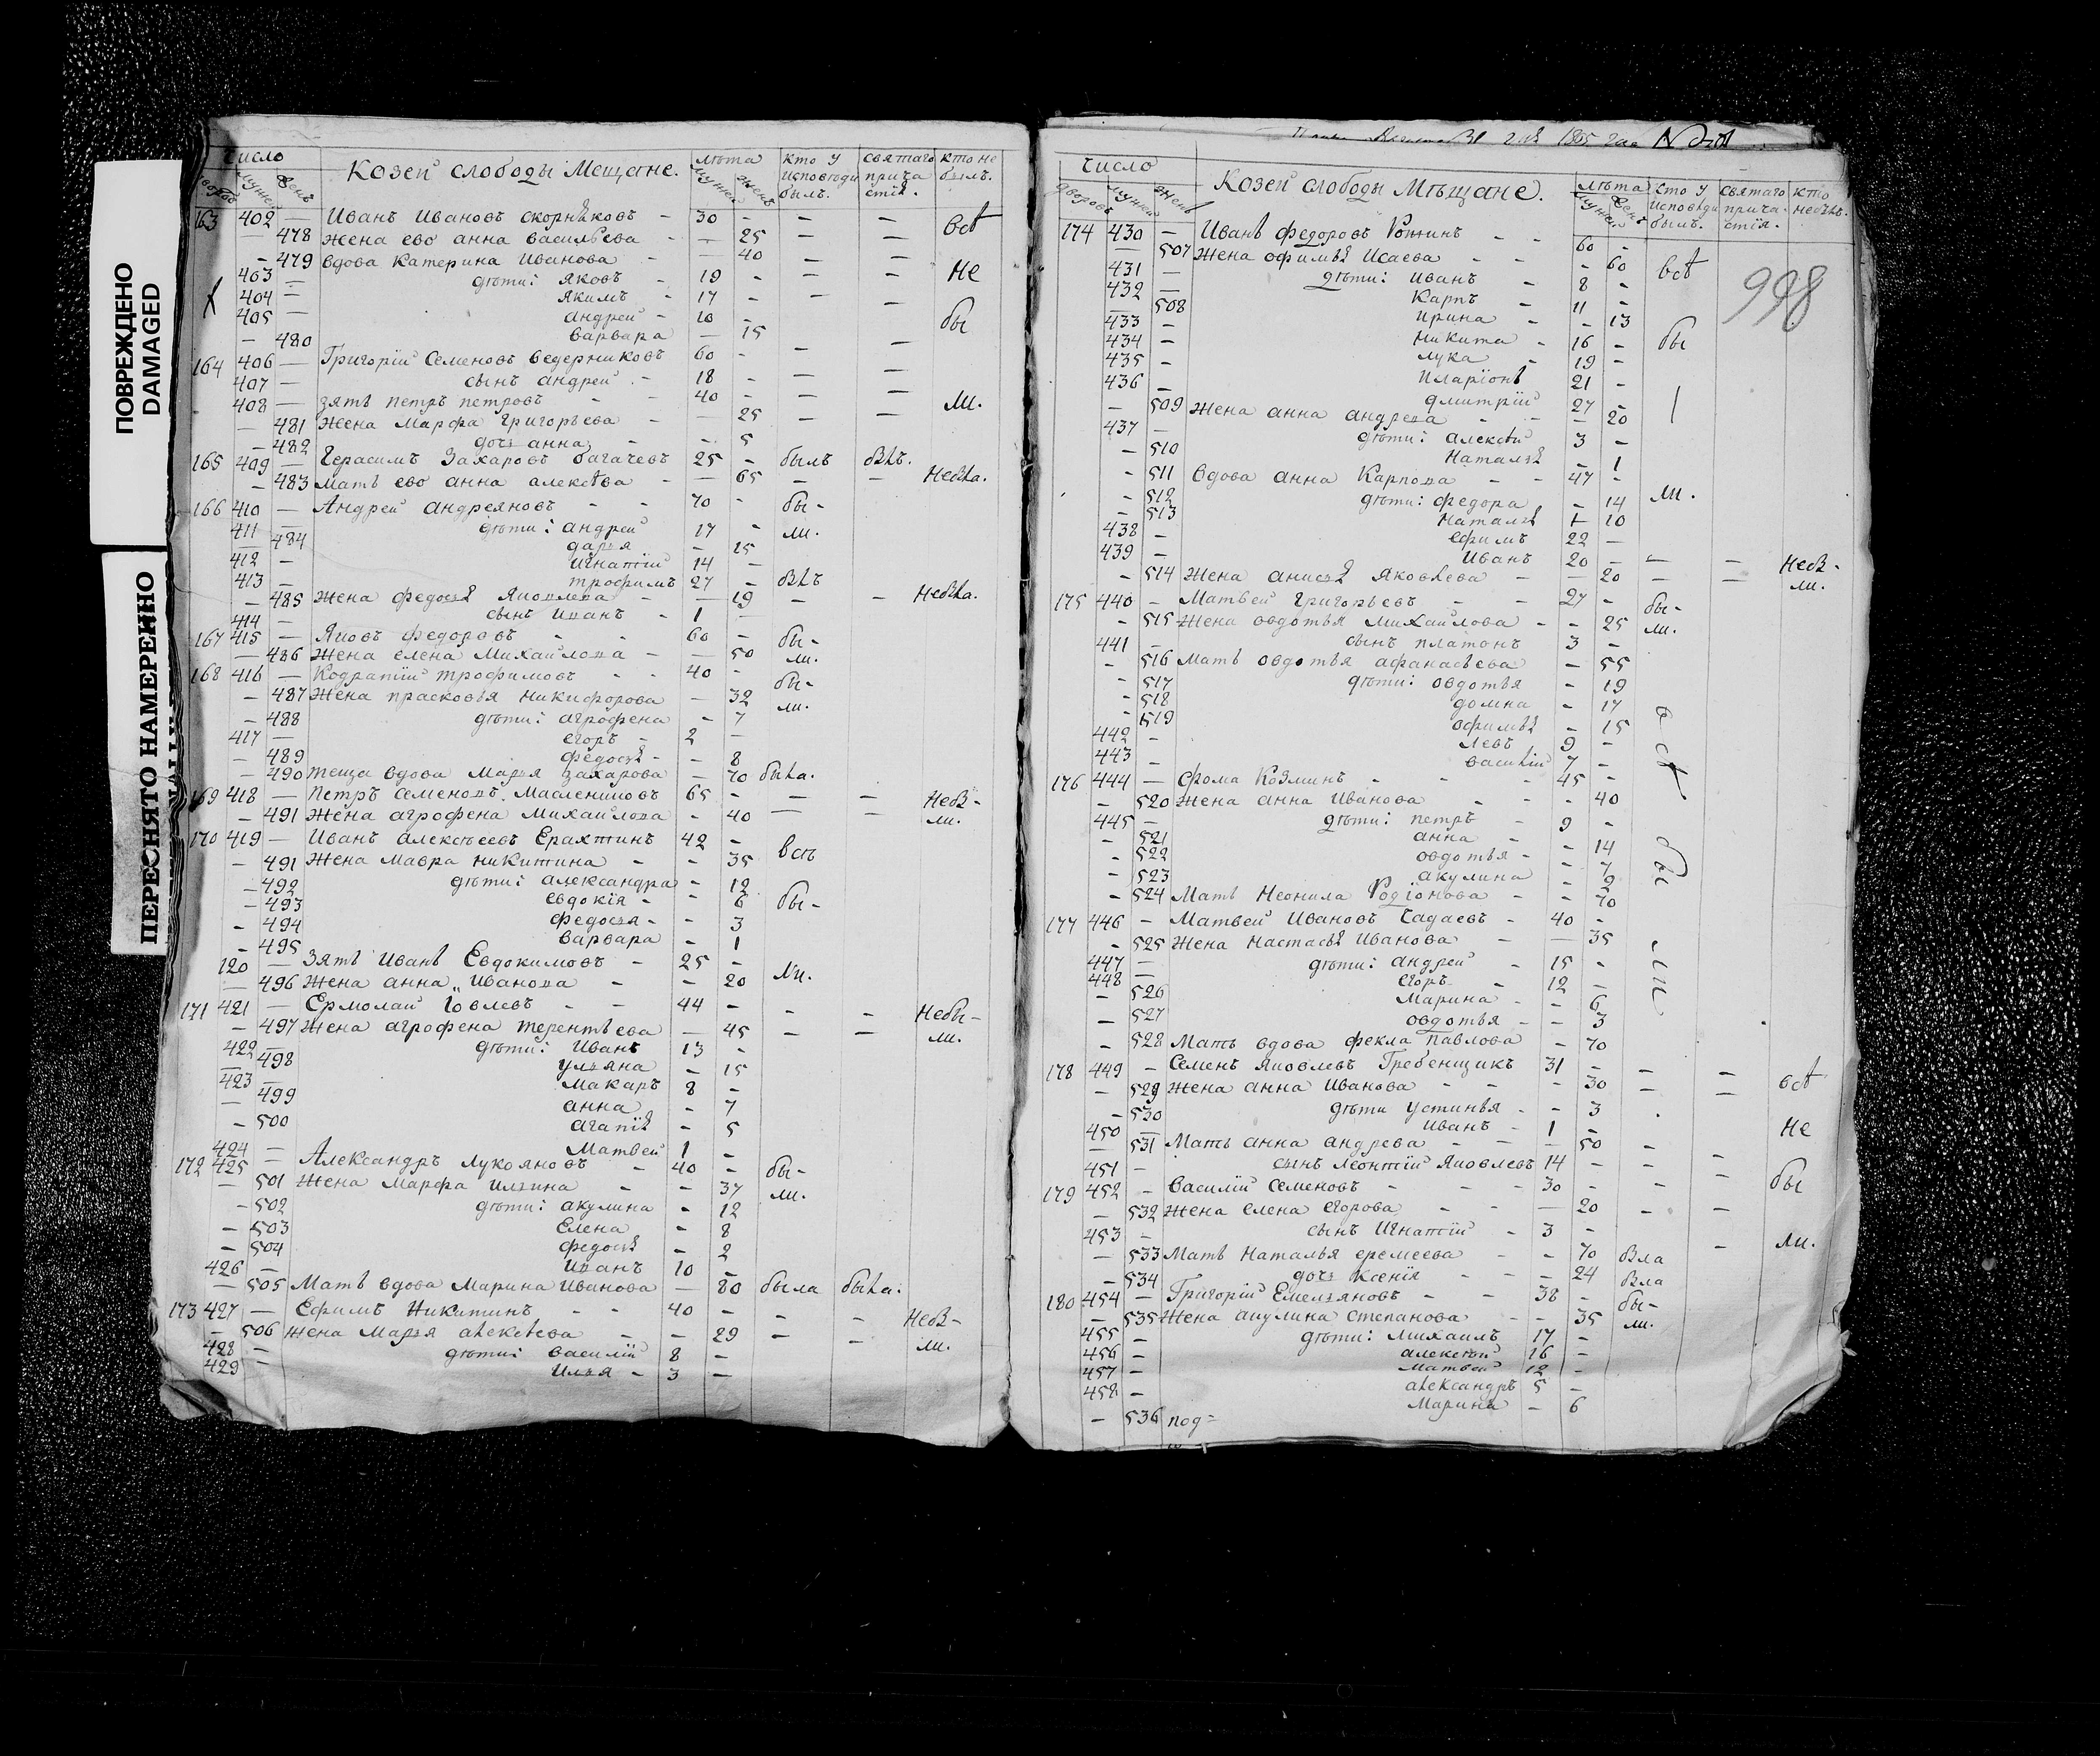 ПОВРЕЖДЕНО
DAMAGED
ПЕРЕСНЯТО НАМЕРЕННО
число
дворовъ мужей женъ
Козей слободы Мещане.
лѣта
мужей женъ
кто у исповѣди былъ.
святаго причастія.
кто не былъ.
163 402 — Иванъ Ивановъ скорняковъ — 30 - — — всѣ
— 478 Жена ево анна васильева - — 25 — —
- 479 вдова Катерина Иванова - — 40 — —
403 — дѣти: Яковъ - 19 - — — не
404 — Якимъ - 17 - — —
405 — андрей - 10 - бы
- 480 варвара — 15
164 406 — Григорій Семеновъ ведерниковъ 60 - — —
407 — сынъ андрей - 18 - — —
408 — зять петръ петровъ - 40 - — — ли.
— 481 Жена Марфа Григорьева - — 25 — —
- 482 дочь анна - - 5
165 409 — Герасимъ Захаровъ багачевъ 25 - былъ
- 483 Мать ево анна алексѣева - — 65 — -
166 410 — Андрей андреяновъ - - 70 - бы-
411 — дѣти: андрей 17 - ли.
— 484 дарья - 15
412 — игнатій 14 —
413 — трофимъ 27 -
- 485 Жена федосья Яковлева - — 19 - —
414 — сынъ иванъ - 1 —
167 415 — Яковъ федоровъ - - 60 - бы-
— 486 Жена елена Михайлова - — 50 ли.
168 416 — Кодратій трофимовъ - - 40 - бы-
- 487 Жена прасковья никифорова — 32 ли.
- 488 дѣти: агрофена - 7
417 — егоръ - 2 —
- 489 федосья - - 8
- 490 теща вдова Марья захарова — 70 была.
169 418 — Петръ семеновъ Масленниковъ 65 - — —
- 491 Жена агрофена Михайлова - 40 — — ли.
170 419 — Иванъ алексѣевъ Ерахтинъ 42 - всѣ
— 491 Жена Мавра никитина - - 35
- 492 дѣти: александра - 12
- 493 евдокія - - 6 бы-
- 494 федосья - - 3
- 495 варвара - 1
120 — Зять Иванъ Евдокимовъ - 25 -
— 496 Жена анна Иванова - - 20 ли.
171 421 — Ермолай Іовлевъ - - 44 - - - небы-
- 497 Жена агрофена терентьева — 45 — — ли.
422 — дѣти: Иванъ 13 -
— 498 ульяна - 15
423 — Макаръ 8 -
— 499 анна - 7
- 500 агапія - 5
424 — Матвей 1 -
172 425 — Александръ Лукояновъ - 40 - бы-
— 501 Жена Марфа ильина - - 37 ли.
- 502 дѣти: акулина - 12
- 503 Елена - 8
- 504 федосья - 2
426 — иванъ 10 -
— 505 Мать вдова Марина Иванова — 80 была была.
173 427 — Ефимъ Никитинъ - - 40 - - -
- 506 Жена Марья алексѣева - - 29 - — ли.
428 — дѣти: василій 8 -
429 — Илья - 3 —
1865
998
Число
дворовъ мужей женъ
Козей слободы Мѣщане.
лѣта
мужей женъ
кто у исповѣди былъ.
святаго причастія.
кто небылъ.
174 430 — Иванъ федоровъ - - 60 -
— 507 Жена офимья Исаева - - - 60 всѣ
431 — дѣти: Иванъ - 8 -
432 — Карпъ - 11 -
— 508 ирина - - 13
433 - никита - 16 - бы
434 - лука - 19 -
435 - иларіонъ 21 -
436 - дмитрій 27 -
- 509 Жена анна андреева - - — 20
437 — дѣти: алексѣй 3 -
- 510 Наталья - 1
- 511 вдова анна Карпова - - 47 -
- 512 дѣти: федора - 14 ли.
- 513 Наталья 10
438 - ефимъ 22 —
439 - Иванъ 20 - — —
- 514 Жена анисья Яковлева - — 20 — — ли.
175 440 - Матвей григорьевъ - - 27 - бы-
- 515 Жена овдотья Михайлова - - 25 ли.
441 — сынъ платонъ 3 -
- 516 Мать овдотья афанасьева - 55
- 517 дѣти: овдотья - 19
- 518 домна - 17
- 519 офимья - 15
442 - левъ 9 - всѣ
443 - василій 7 -
176 444 — Фома Козминъ - - - 45 -
- 520 Жена анна Иванова - - - 40
445 — дѣти: петръ - 9 -
- 521 анна - - 14
- 522 овдотья - - 7
- 523 акулина - 9 бы
- 524 Мать Неонила Родіонова - - 70
177 446 - Матвей Ивановъ Садаевъ - 40 -
- 525 Жена настасья Иванова - — 35
447 — дѣти: андрей - 15 - ли
448 — егоръ - 12 -
— 526 Марина - - 6
- 527 овдотья - - 3
- 528 Мать вдова фекла павлова - 70
178 449 - Семенъ Яковлевъ Гребенщикъ 31 - - -
- 529 Жена анна Иванова - - - 30 — — всѣ
- 530 дѣти устинья - - 3
450 — иванъ - 1 - не
— 531 Мать анна андреева - - — 50 -
451 - сынъ леонтій Яковлевъ 14 - - -
179 452 - василій семеновъ - - - 30 - - - бы
— 532 Жена елена егорова - - — 20 - —
453 — сынъ Игнатій - 3 -
— 533 Мать Наталья еремеева - - 70 - ли.
- 534 дочь Ксенія - - - 24
180 454 — Григорій Емельяновъ - - 38 - бы-
- 535 Жена акулина степанова - - 35 ли.
455 - дѣти: Михаилъ 17 -
456 - алексѣй 16 -
457 - матвей 12 -
458 - александръ 5 -
Марина - 6
— 536 под=